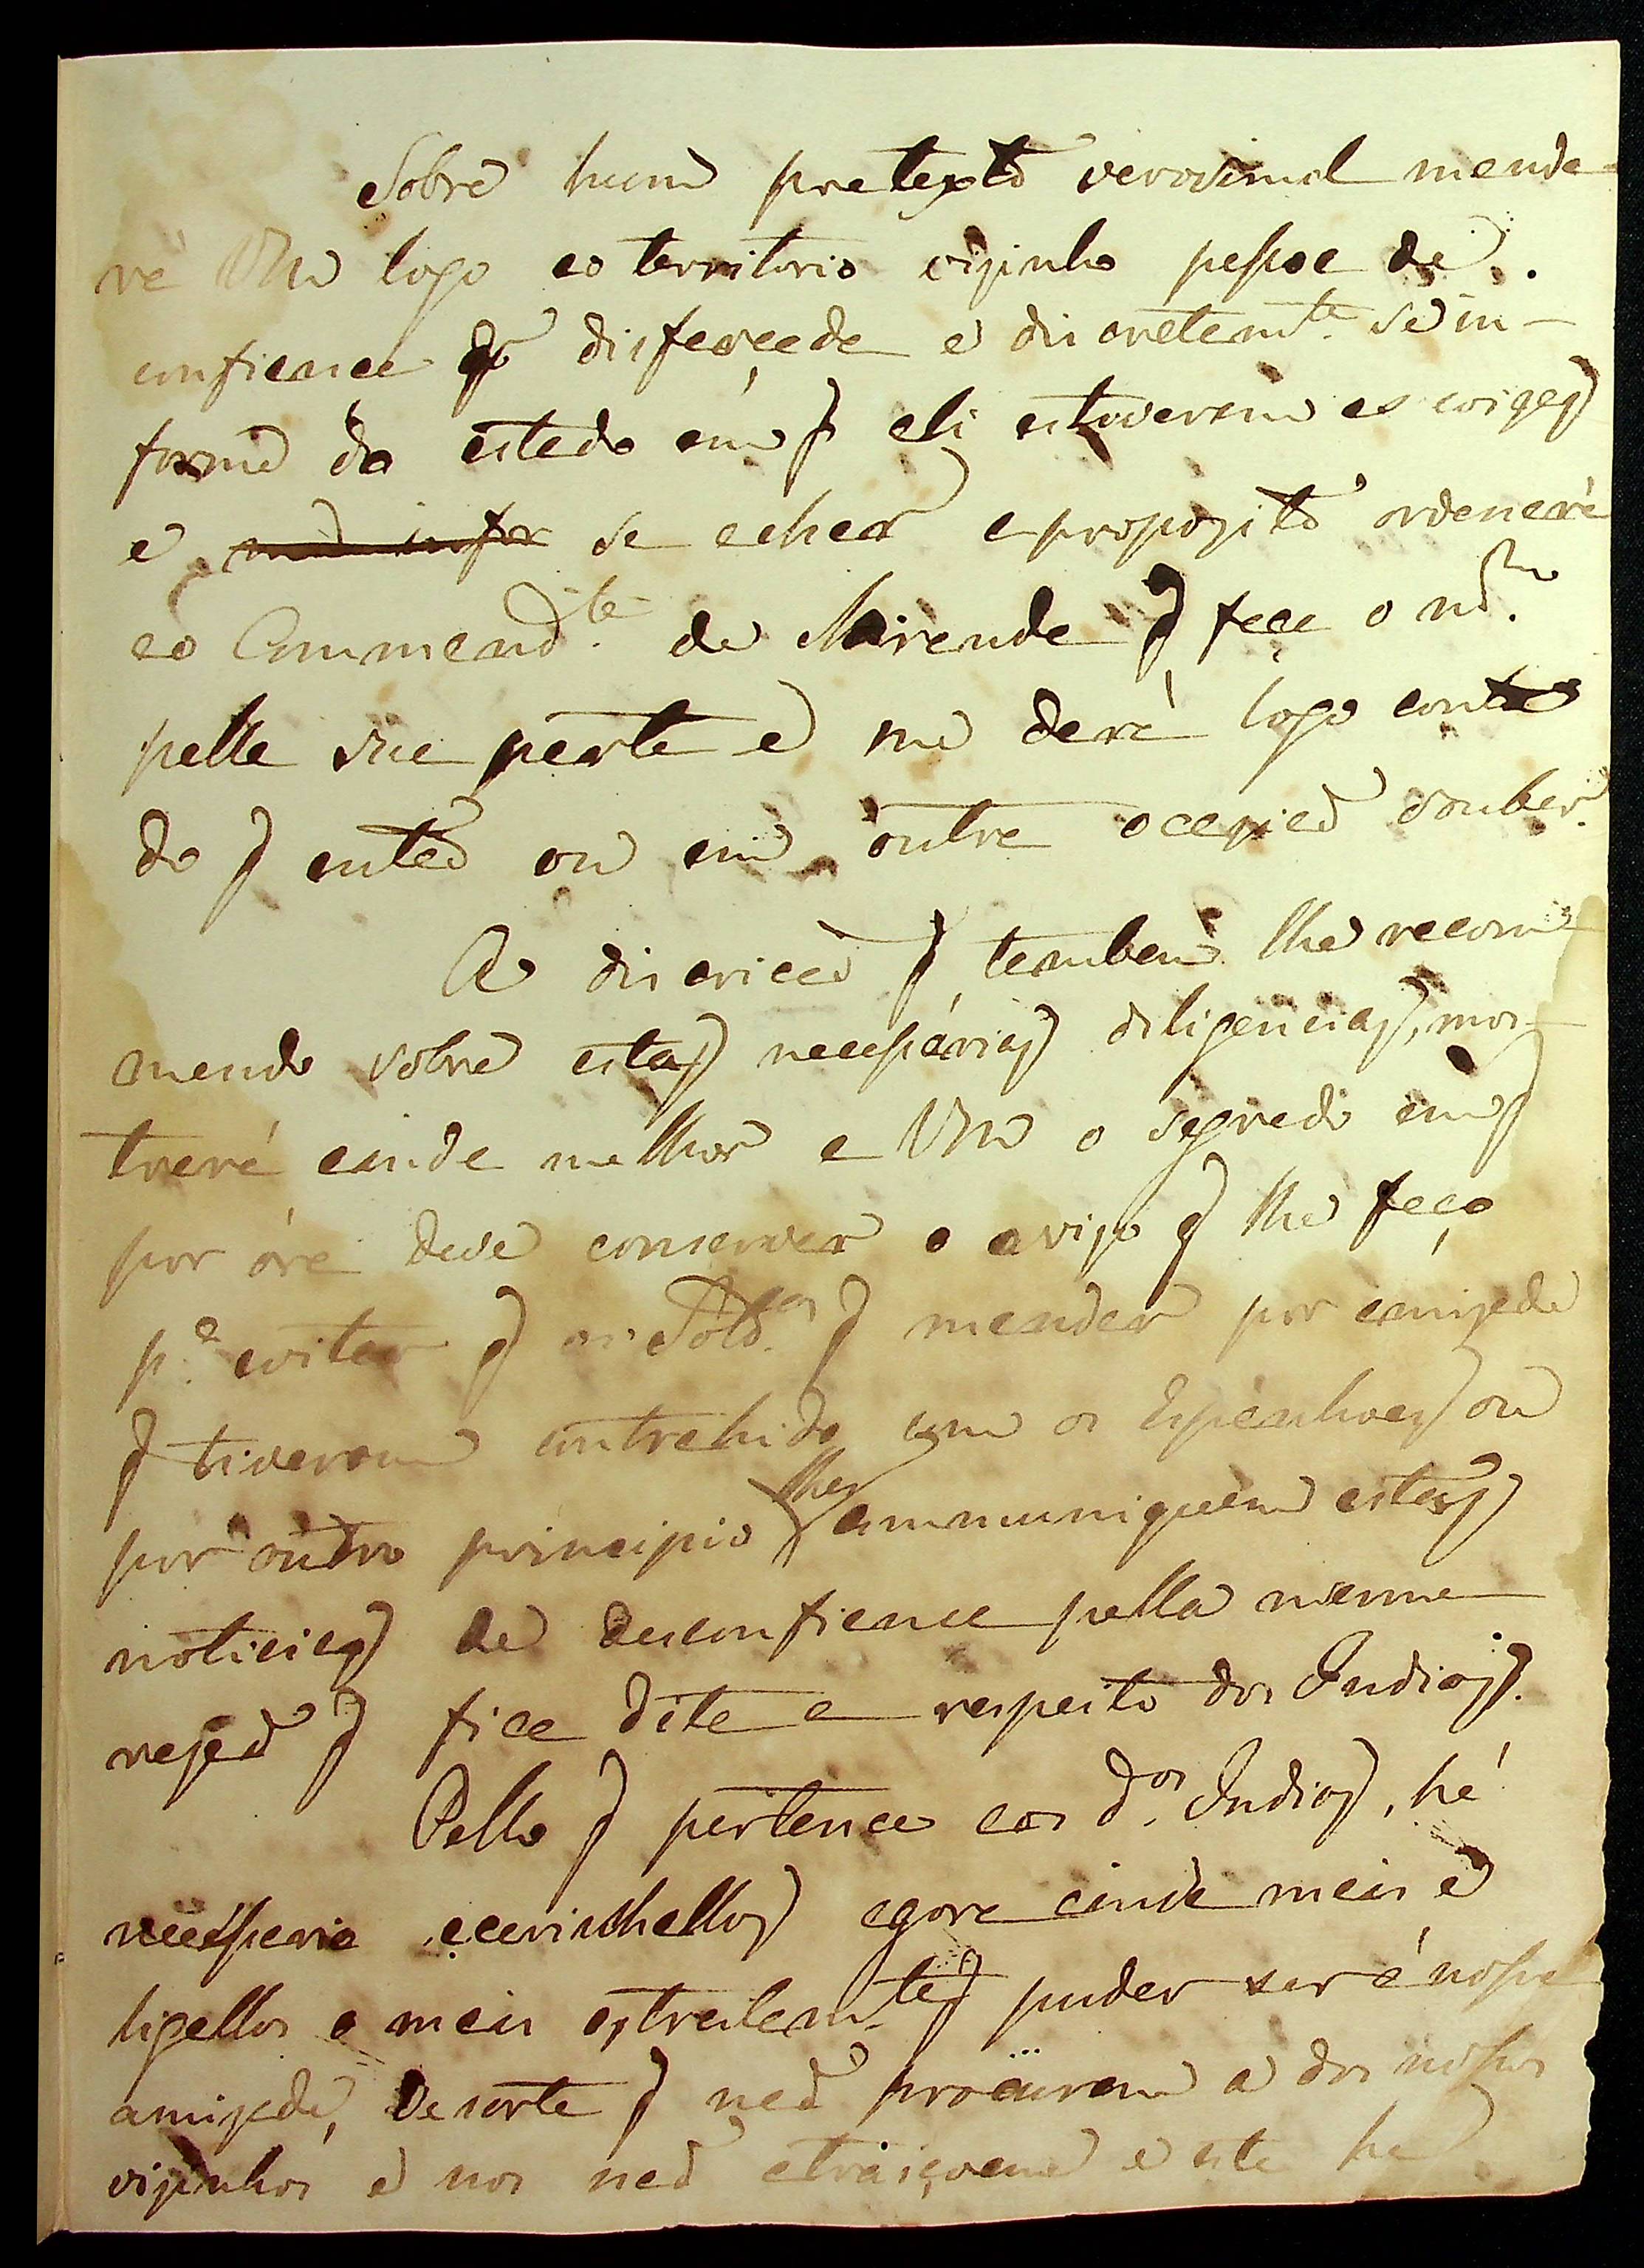 Sobre hum pretexto verosimel manda-
rá Vm logo ao territorio vizinho pessoa de
confianca q disfarçada e discretamte. se in-
forme do estado em q ali estiverem as coizas
e se achar a propozito ordenará
ao Commandte. de Miranda q faça o msmo.
pella sua parte e me dará logo conta
do q entaõ ou em outra ocaziaõ souber.
A discricaõ q tambem lhe recom
mendo sobre estas necessárias diligencias, mos-
trará ainda melhor a Vm o segredo em q
por óra deve conservar o avizo q lhe faço
pa. evitar q os Soldos. q mandar por amizade
q tiverem contrahido com os Espanhoes ou
por outro principio lhes communiquem estas
noticias de desconfianca pella mesma
rezaõ q fica dita a respeito dos Indios.
Pello q pertence aos dos. Indios, hé
necessario acarichallos agora ainda mais e
ligallos o mais estreitamte. q puder ser á nossa
amizade, de sorte q naõ procurem a dos nossos
vizinhos e nos naõ atraiçoem e este he